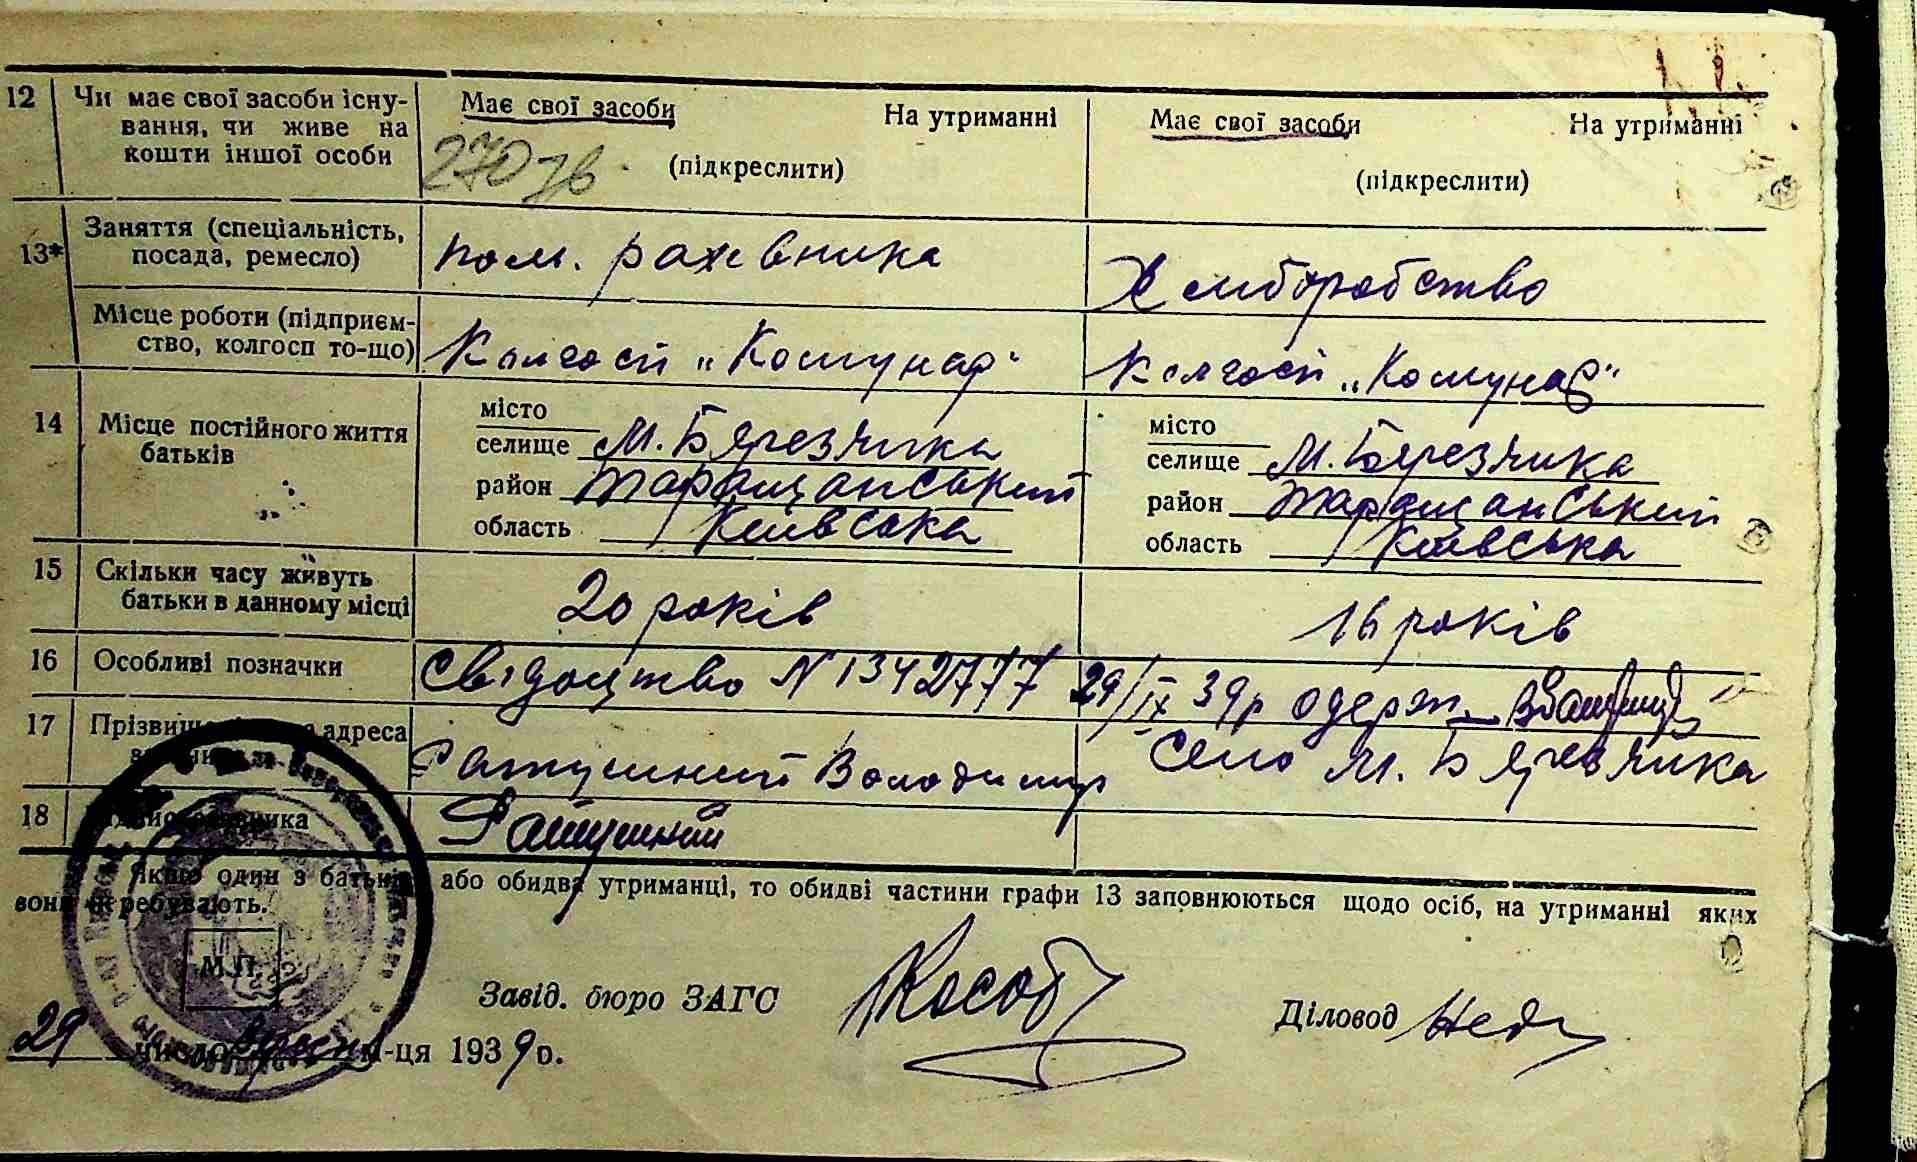 12 Чи має свої засоби існу-
вання, чи живе на
кошти іншої особи
Має свої засоби На утриманні
270 зв (підкреслити)
Має свої засоби На утриманні
(підкреслити)
13* Заняття (спеціальність,
посада, ремесло)
пом. рахівника
Хліборобство
Місце роботи (підприєм-
ство, колгосп то-що)
Колгосп „Комунар"
Колгосп „Комунар"
14 Місце постійного життя
батьків
місто
селище М. Березянка
район Таращанський
область Київська
місто
селище М. Березянка
район Таращанський
область Київська
15 Скільки часу живуть
батьки в данному місці
20 років
16 років
16 Особливі позначки
Свідоцтво N 1342777 29/IX 39р одерж.
17 адреса
Ратушний Володимир Село М. Березянка
18
Ратушний
Якщо один з батьків або обидва утриманці, то обидві частини графи 13 заповнюються щодо осіб, на утриманні яких
вони перебувають.
М.П.
Завід. бюро ЗАГС
Діловод
29 число м-ця 1939 р.